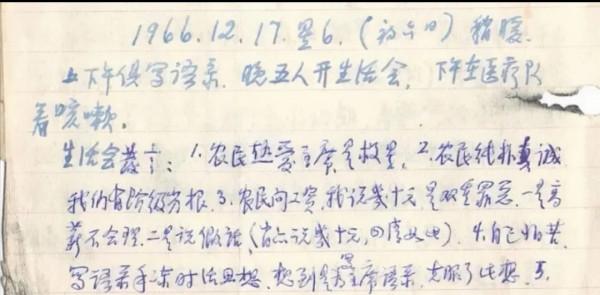 1966.12.17.星6.(初六日)稍暖.
上下午俱写语录.晚五人开生活会,下午在医疗队
看咳嗽.
生活会发言:1.农民热爱主席是救星,2.农民纯朴真诚
我们有阶级劣根.3.农民问工资,我说几十元是双重罪恶.一是高
薪不合理.二是说假话(有点说几十元,四清如此).4.自己怕苦
写语录手冻时活思想.想到是写主席语录,克服了此想.5.